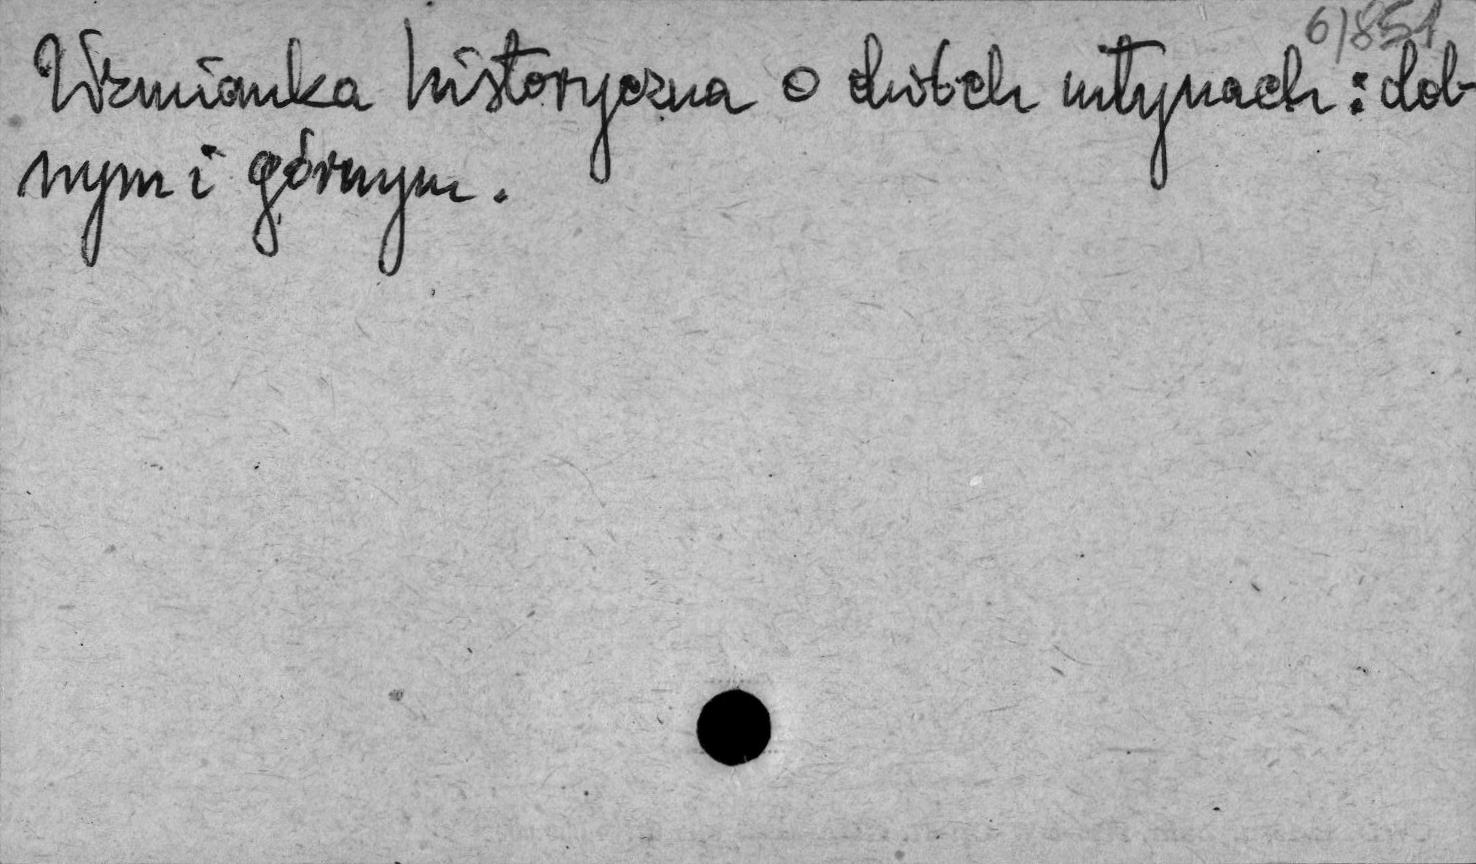 6/851
Wzmianka historyczna o dwóch młynach: dol-
nym i górnym.